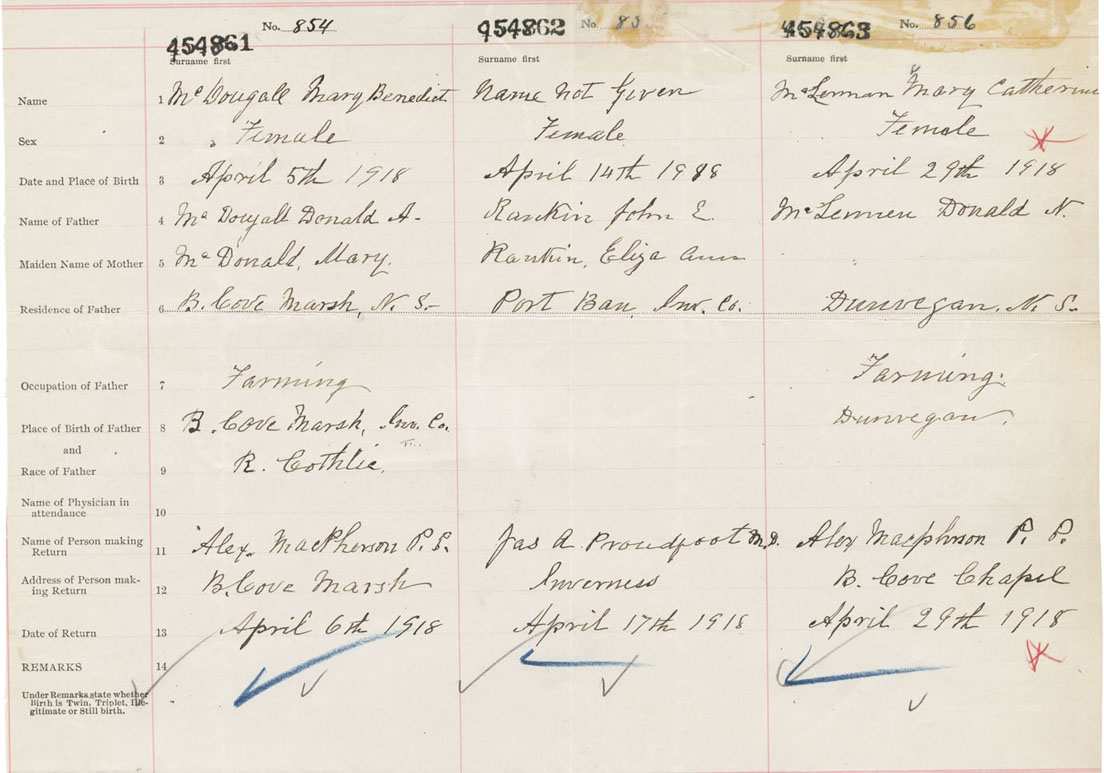 No. 854 No. 85 No. 856
454861 454862 454863
Surname first Surname first Surname first
Name 1 Mc Dougall Mary Benedict Name Not Given McLennan Mary Catherine
Sex 2 Female Female Female
Date and Place of Birth 3 April 5th 1918 April 14th 1918 April 29th 1918
Name of Father 4 Mc Dougall Donald A. Rankin John E McLennen Donald N.
Maiden Name of Mother 5 Mc Donald, Mary. Rankin, Eliza Ann
Residence of Father 6 B. Cove Marsh, N. S. Port Ban, Inv. Co. Dunvegan, N. S.
Occupation of Father 7 Farming Farming.
Place of Birth of Father 8 B. Cove Marsh, Inv. Co. Dunvegan
and
Race of Father 9 R. Cothlic.
Name of Physician in
attendance 10
Name of Person making
Return 11 Alex. MacPherson P. P. Jas A. Proudfoot M.D. Alex Macpherson P. P.
Address of Person mak-
ing Return 12 B. Cove Marsh Inverness B. Cove Chapel
Date of Return 13 April 6th 1918 April 17th 1918 April 29th 1918
REMARKS 14
Under Remarks state whether
Birth is Twin, Triplet, Ille-
gitimate or Still birth.